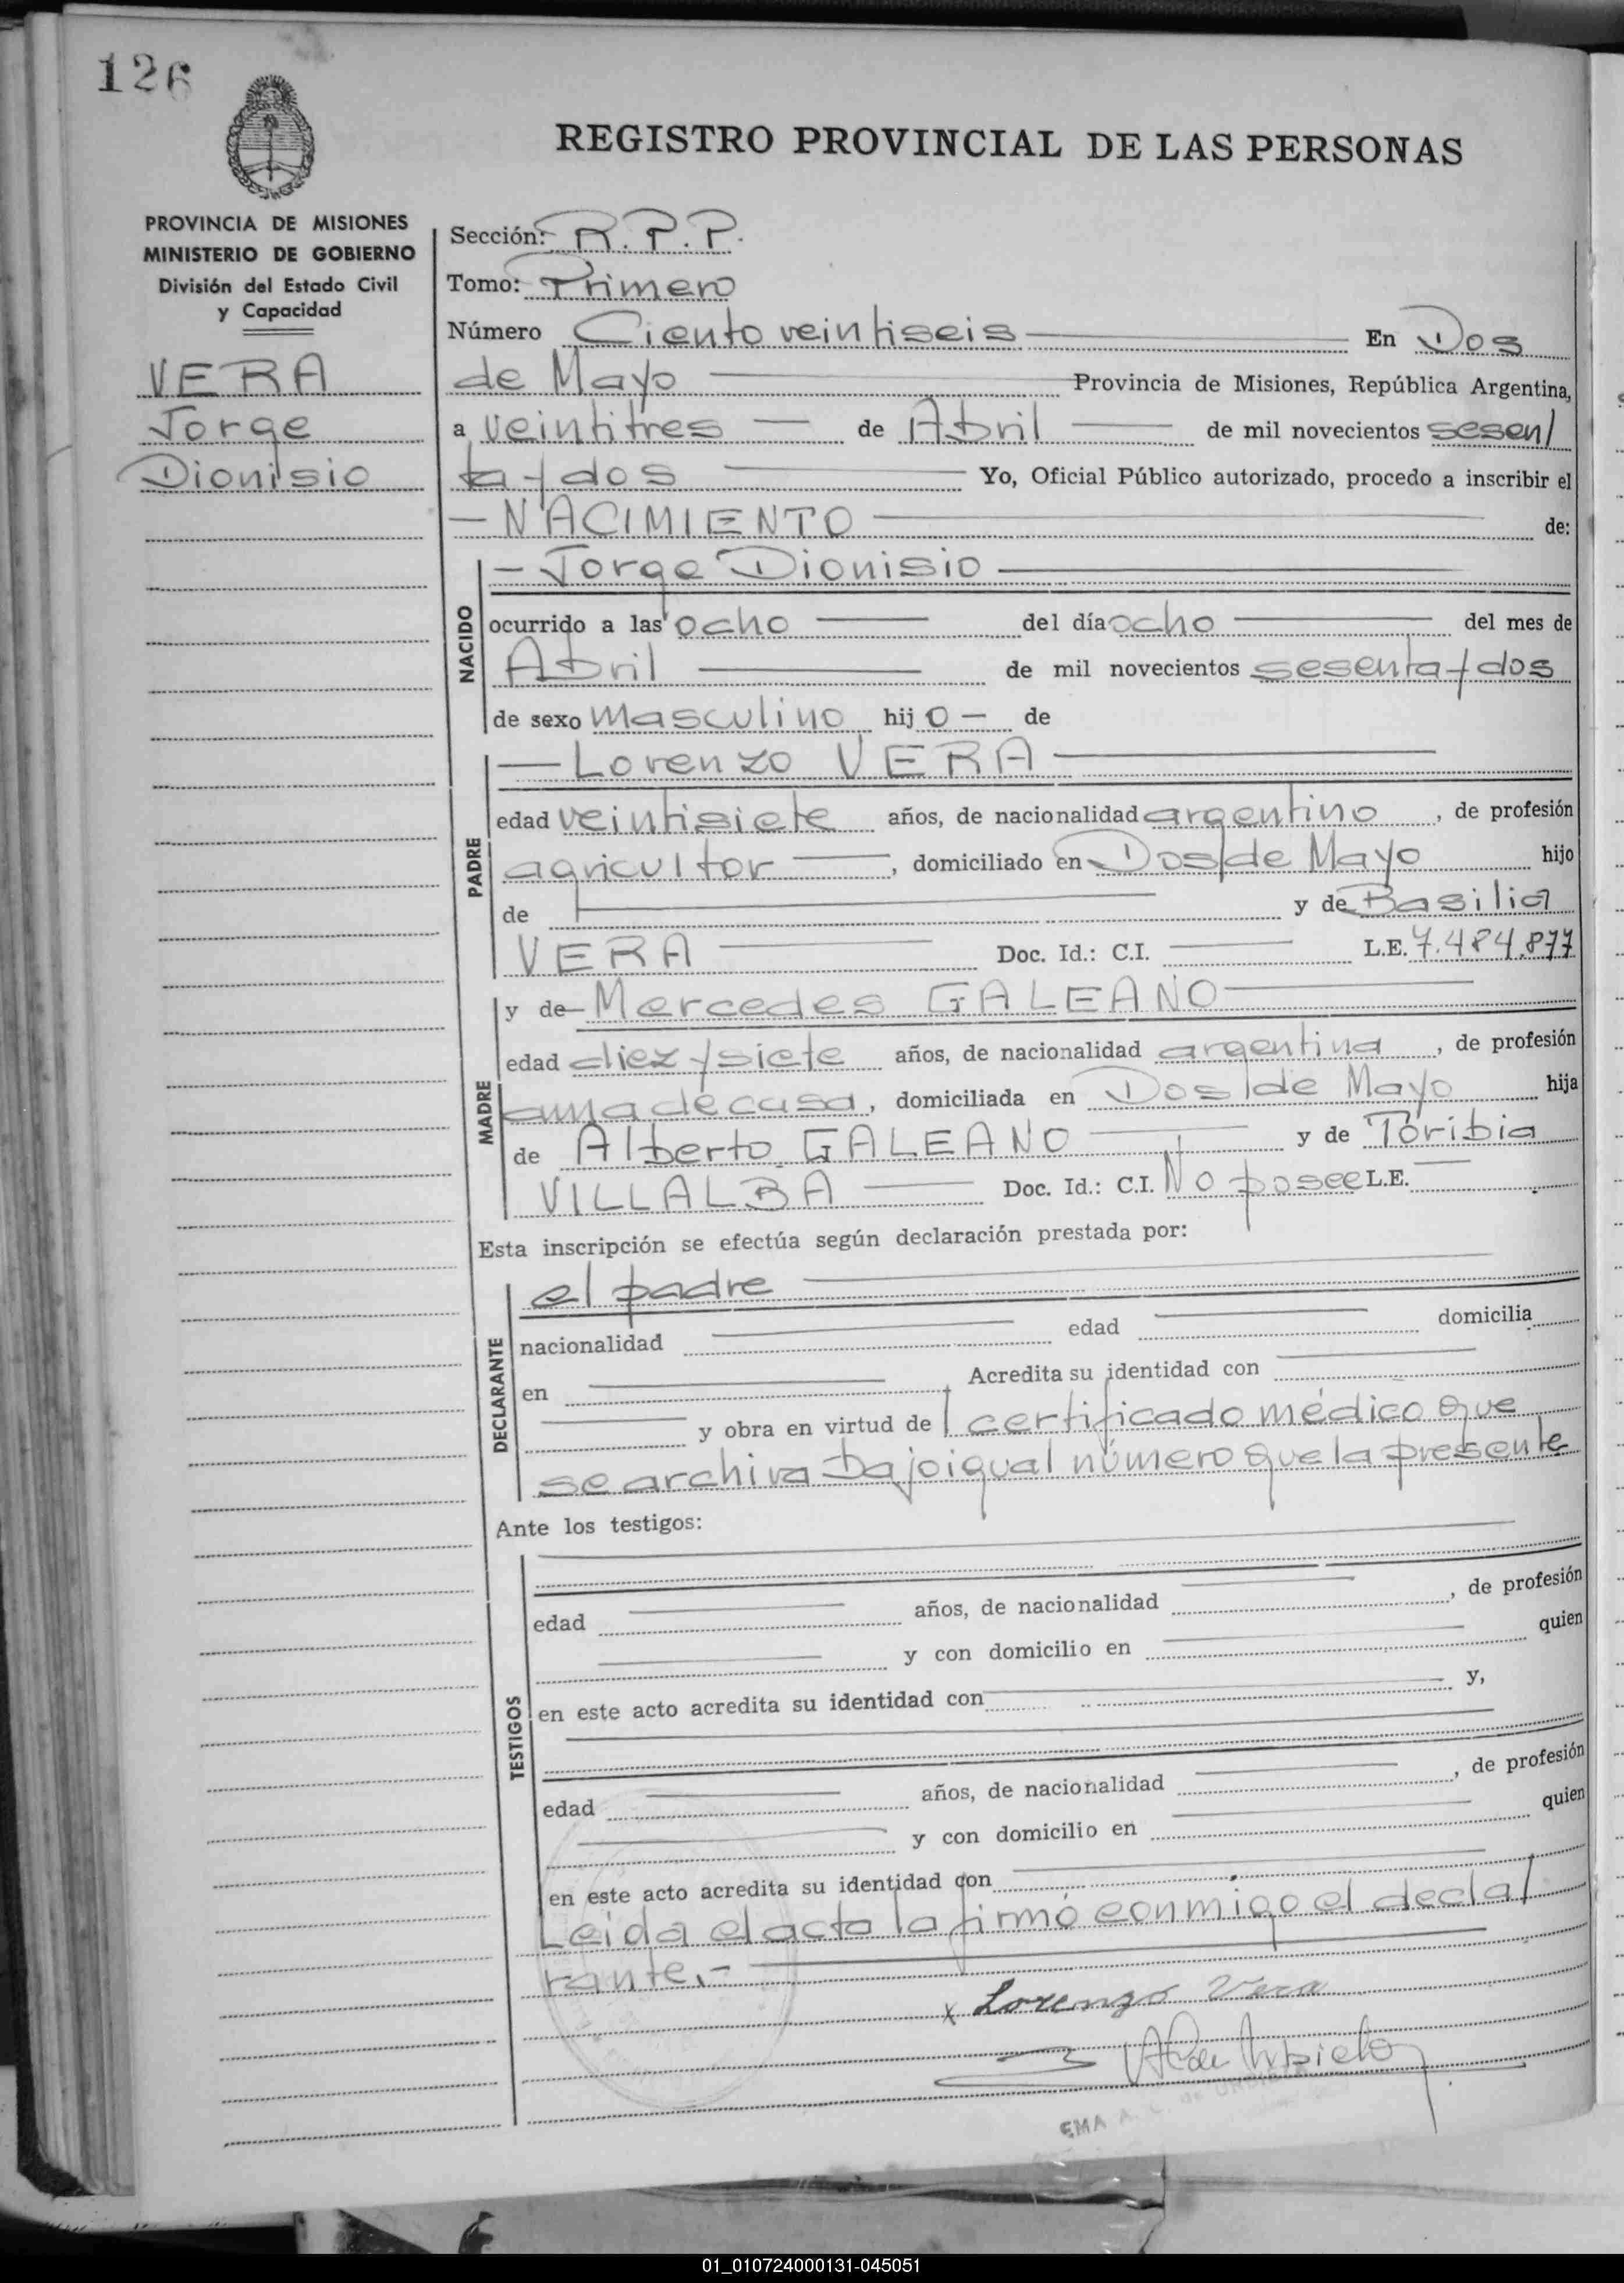 126
REGISTRO PROVINCIAL DE LAS PERSONAS
PROVINCIA DE MISIONES
MINISTERIO DE GOBIERNO
División del Estado Civil
y Capacidad
VERA
Jorge
Dionisio
Sección: R.P.P.
Tomo: Primero
Número Ciento veintiseis En Dos
de Mayo Provincia de Misiones, República Argentina,
a veintitres de Abril de mil novecientos sesen/
ta y dos Yo, Oficial Público autorizado, procedo a inscribir el
NACIMIENTO de:
NACIDO
Jorge Dionisio
ocurrido a las ocho del día ocho del mes de
Abril de mil novecientos sesenta y dos
de sexo masculino hijo de
PADRE
Lorenzo VERA
edad veintisiete años, de nacionalidad argentino, de profesión
agricultor, domiciliado en Dos de Mayo hijo
de y de Basilia
VERA Doc. Id.: C.I. L.E. 7.484.877
MADRE
y de Mercedes GALEANO
edad diez y siete años, de nacionalidad argentina, de profesión
ama de casa, domiciliada en Dos de Mayo hija
de Alberto GALEANO y de Toribia
VILLALBA Doc. Id.: C.I. No posee L.E.
Esta inscripción se efectúa según declaración prestada por:
DECLARANTE
el padre
nacionalidad edad domicilia
en Acredita su identidad con
y obra en virtud de certificado médico que
se archiva bajo igual número que la presente
Ante los testigos:
TESTIGOS
edad años, de nacionalidad , de profesión
y con domicilio en quien
en este acto acredita su identidad con y,
edad años, de nacionalidad , de profesión
y con domicilio en quien
en este acto acredita su identidad con
Leida el acta la firmó conmigo el decla/
rante.-
x Lorenzo Vera
EMA A. L. de
01_010724000131-045051